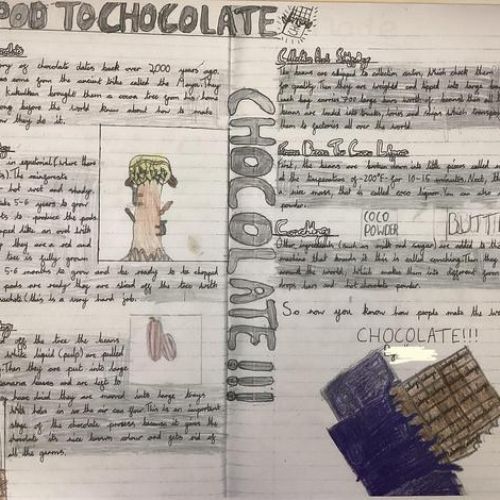 POD TO CHOCOLATE
ory of chocolate dates back over 2,000 years ago.
as come from the ancient tribe called the
Kukulkan brought them a cocoa tree from his home
ong before the world knew about how to make
ow they do it.
in equatorial (where there
The rainforests
hot wet and shady.
take 5-6 years to grow
ts to produce the pods.
shaped like an oval with
they are a red and
tree is fully grown
5-6 months to grow and be ready to be chopped
pods are ready they are sliced off the tree with
machete (this is a very hard job.
off the tree the beans
white liquid (pulp) are pulled
Then they are put into large
banana leaves and are left to
have dried they are moved into large trays
with holes in so the air can flow. This is an important
stage of the chocolate process because it gives the
chocolate its nice brown colour and gets rid of
all the germs.
CHOCOLATE!!!!
The beans are shipped to collection center, which check them
for quality. Then they are weighed and tipped into large
each bag carries
beans are loaded into trucks, lories and ships which transport
them to factories all over the world.
From Bean To Cocoa Liquor
First, the beans are broken into little pieces called
at the temperature of 200°F for 10-15 minutes. Next, the
a nice mass, that is called coco liquor. You can also
powder.
COCO
POWDER
BUTT
Conching
Other ingredients (such as milk and sugar) are added to
machine that kneads it this is called conching. Then they
around the world, which makes them into different
drops bars and hot chocolate powder.
So now you know how people make the
CHOCOLATE!!!